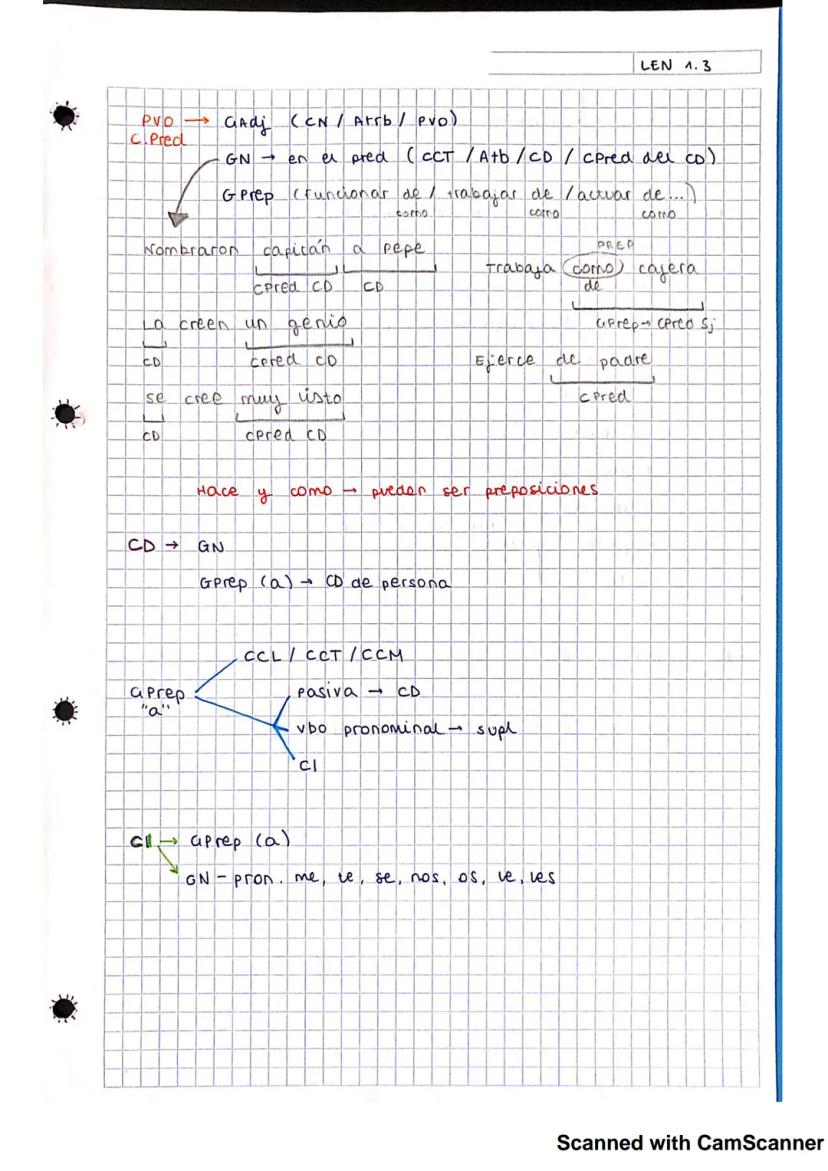 LEN 1.3
PVO → GAdj (CN / Atrb / PVO)
C.Pred
GN → en el pred (CCT / Atb / CD / CPred del CD)
GPrep (funcionar de / trabajar de / actuar de...)
como como como
Nombraron capitán a pepe
CPred CD CD
PREP
Trabaja (como) cajera
de
GPrep → CPred Sj
La creen un genio
CD CPred CD
Ejerce de padre
CPred
se cree muy listo
CD CPred CD
Hace y como → pueden ser preposiciones
CD → GN
GPrep (a) → CD de persona
CCL / CCT / CCM
GPrep
"a"
pasiva → CD
vbo pronominal → supl
CI
CI → GPrep (a)
GN - pron. me, te, se, nos, os, le, les
Scanned with CamScanner